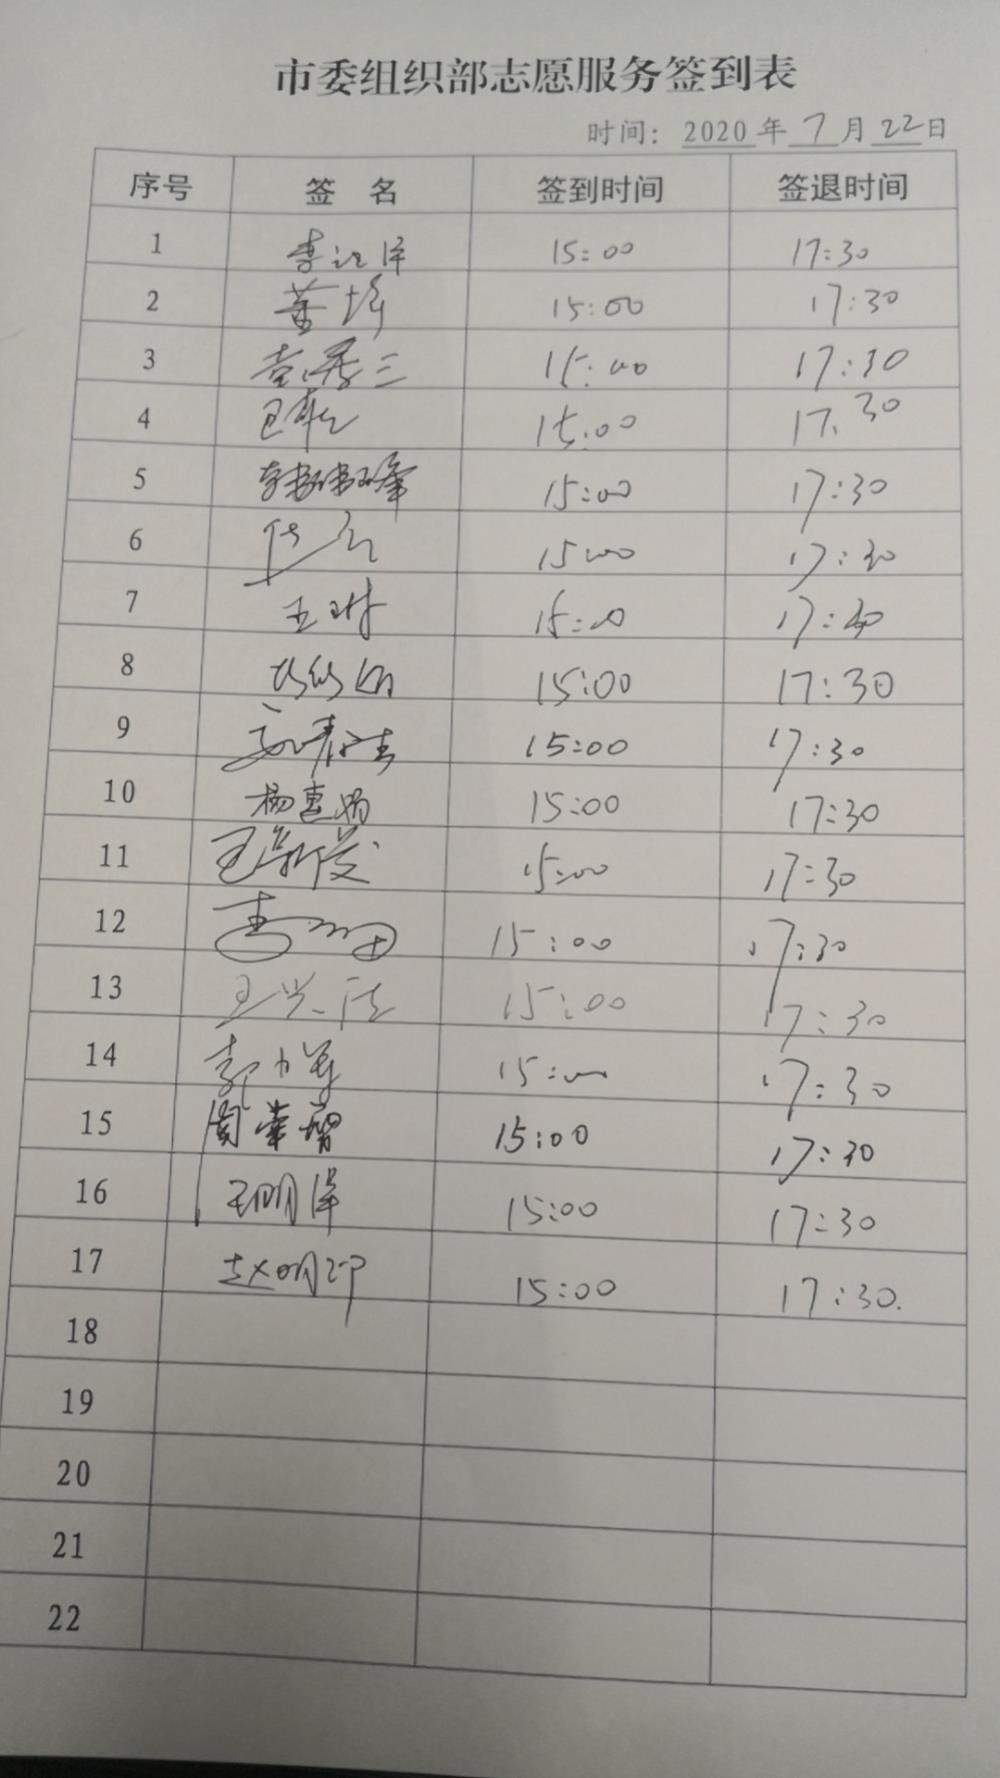 市委组织部志愿服务签到表
时间：2020年7月22日
序号 签 名 签到时间 签退时间
1 李江洋 15:00 17:30
2 董 15:00 17:30
3 15:00 17:30
4 15:00 17.30
5 15:00 17:30
6 15:00 17:30
7 王琳 15:00 17:30
8 15:00 17:30
9 15:00 17:30
10 杨惠娟 15:00 17:30
11 王新 15:00 17:30
12 15:00 17:30
13 王兴 15:00 17:30
14 郭力军 15:00 17:30
15 周荣 15:00 17:30
16 王明泽 15:00 17:30
17 赵明 15:00 17:30.
18
19
20
21
22